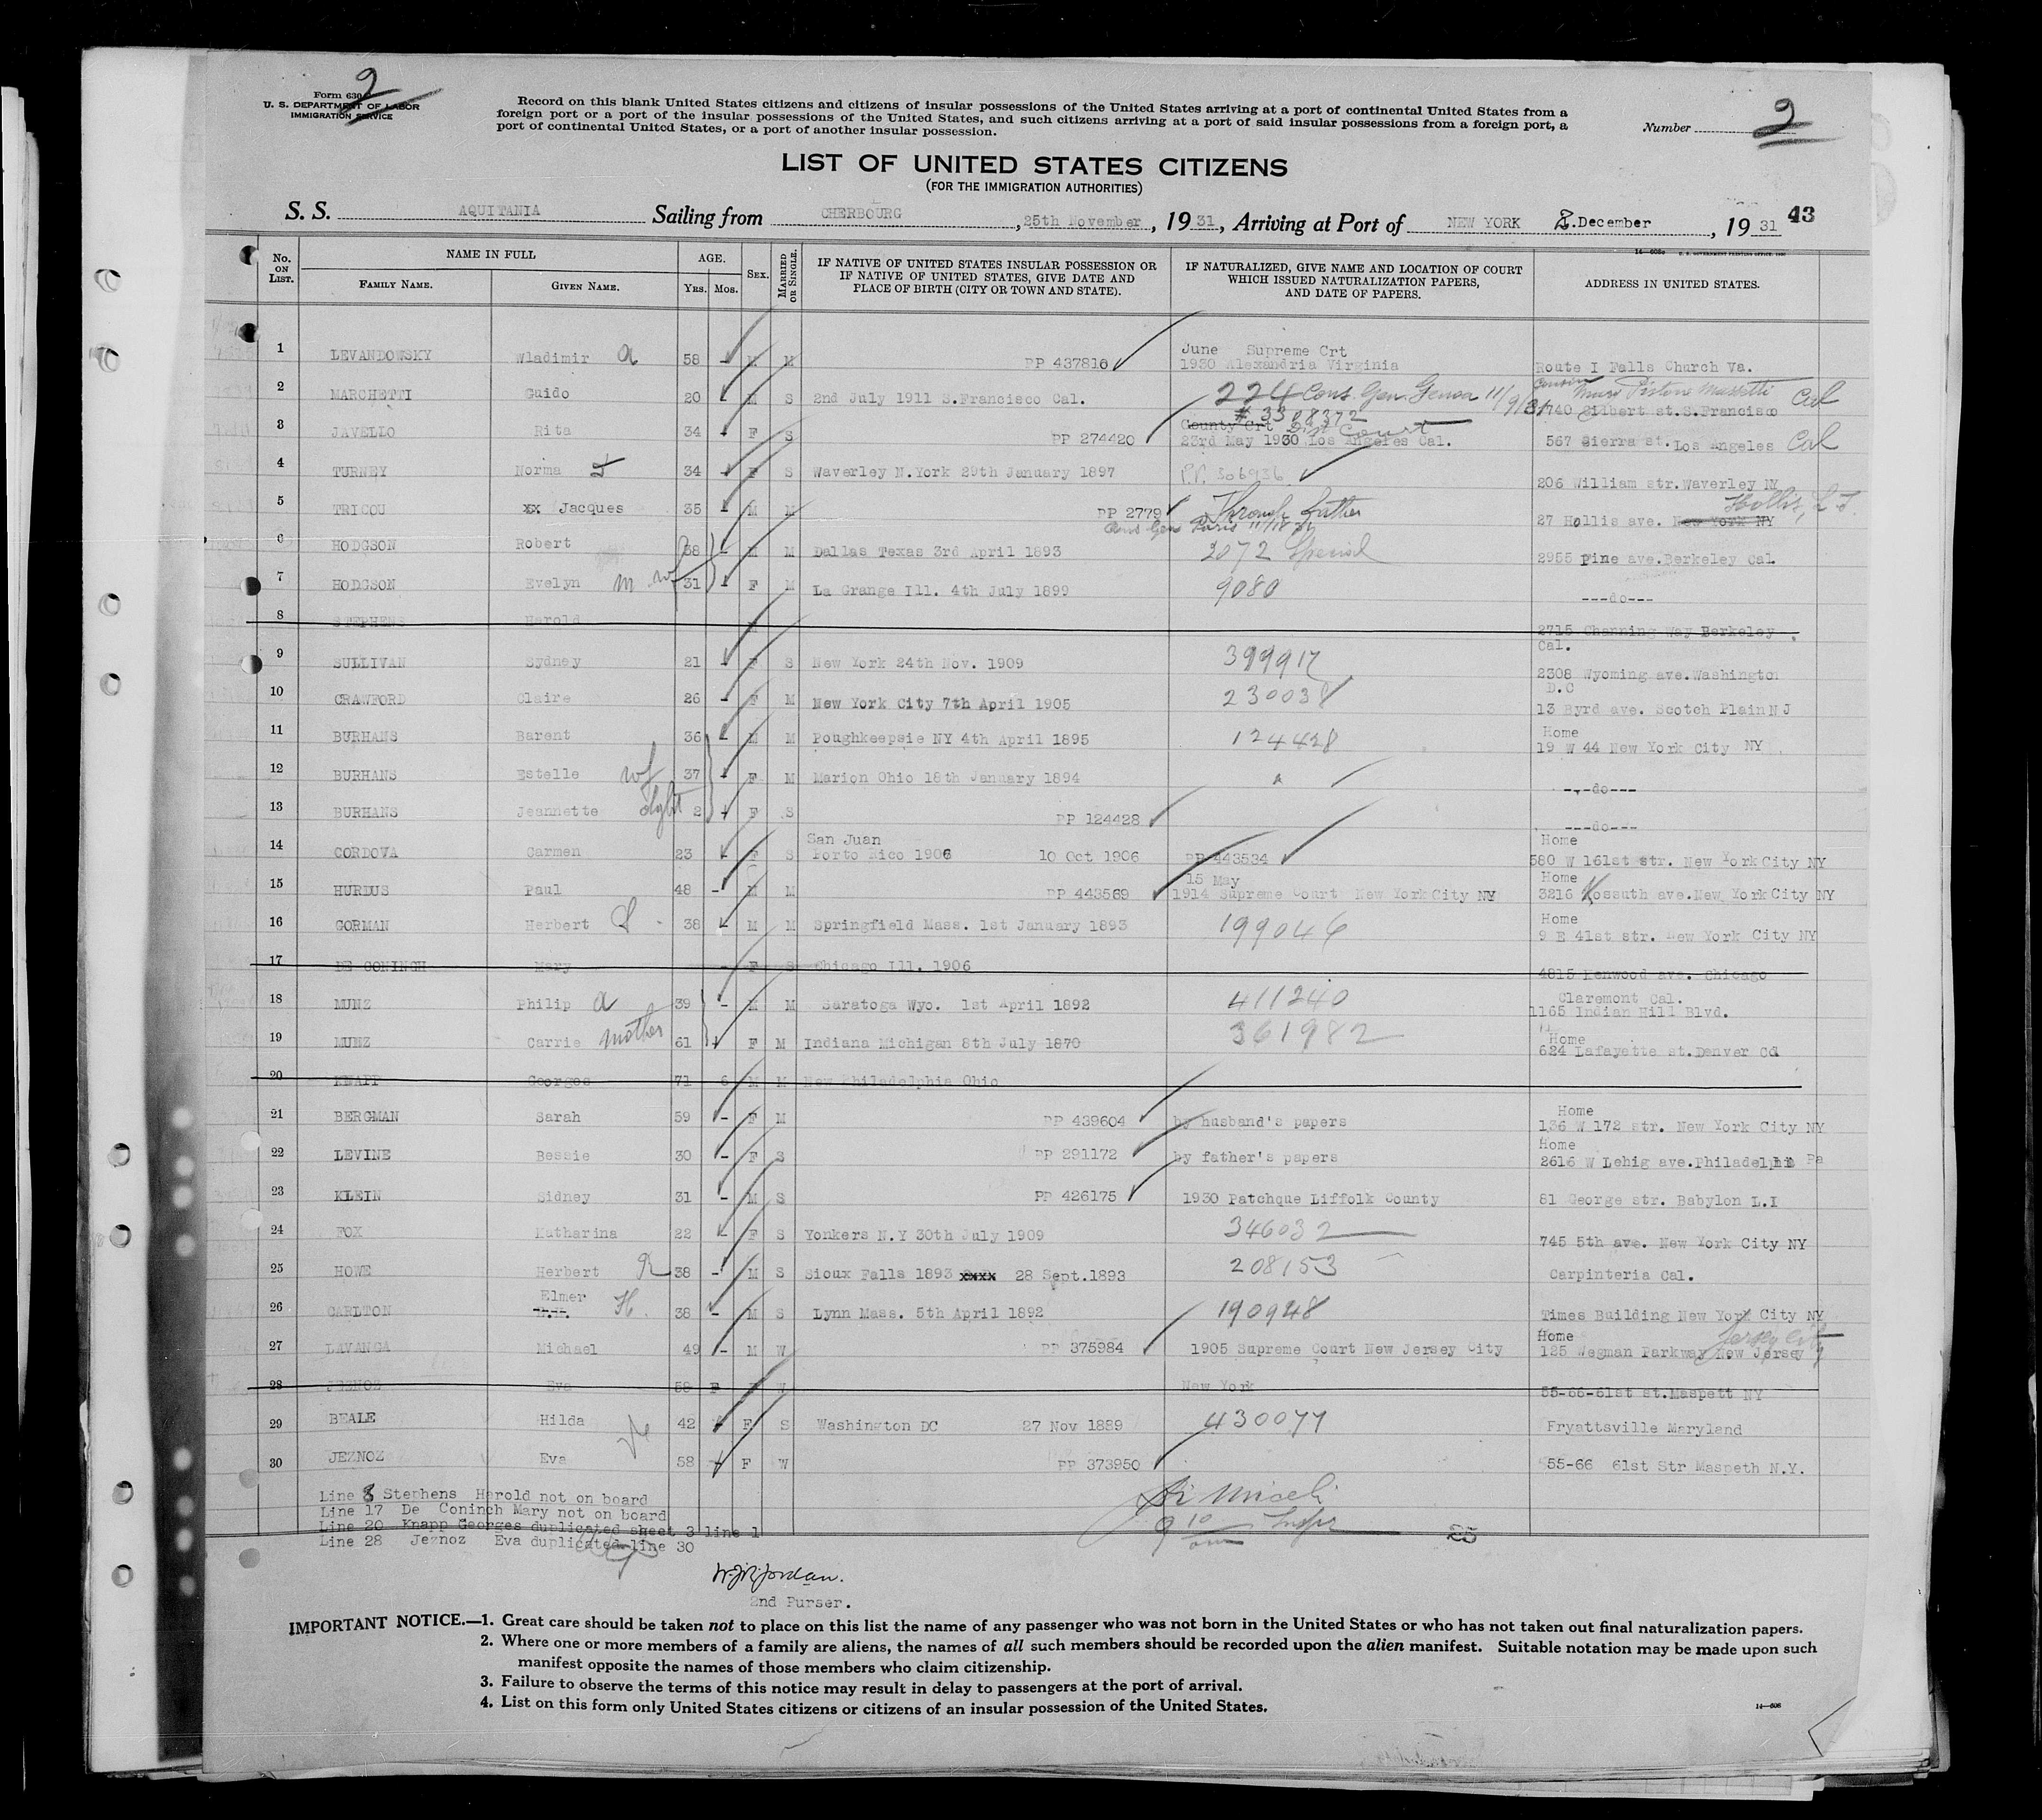 9
Form 630
U. S. DEPARTMENT OF LABOR
IMMIGRATION SERVICE
Record on this blank United States citizens and citizens of insular possessions of the United States arriving at a port of continental United States from a
foreign port or a port of the insular possessions of the United States, and such citizens arriving at a port of said insular possessions from a foreign port, a
port of continental United States, or a port of another insular possession.
Number 9
LIST OF UNITED STATES CITIZENS
(FOR THE IMMIGRATION AUTHORITIES)
S. S. AQUITANIA Sailing from CHERBOURG, 25th November, 1931, Arriving at Port of NEW YORK 2.December, 1931 43
No. ON LIST. NAME IN FULL FAMILY NAME. GIVEN NAME. AGE. Yrs. Mos. SEX. MARRIED OR SINGLE. IF NATIVE OF UNITED STATES INSULAR POSSESSION OR IF NATIVE OF UNITED STATES, GIVE DATE AND PLACE OF BIRTH (CITY OR TOWN AND STATE). IF NATURALIZED, GIVE NAME AND LOCATION OF COURT WHICH ISSUED NATURALIZATION PAPERS, AND DATE OF PAPERS. ADDRESS IN UNITED STATES.
1 LEVANDOWSKY Wladimir a 58 - M M PP 437816 June Supreme Crt 1930 Alexandria Virginia Route I Falls Church Va.
2 MARCHETTI Guido 20 - M S 2nd July 1911 S.Francisco Cal. 224 Cons. Gen. Genoa 11/9/31 1740 Gilbert st.S.Francisco Cal
3 JAVELLO Rita 34 - F S PP 274420 # 3308372 County Crt Dist Court 23rd May 1930 Los Angeles Cal. 567 Sierra st. Los Angeles Cal
4 TURNEY Norma 34 - F S Waverley N.York 29th January 1897 P.P. 306936 206 William str.Waverley NY
5 TRICOU xx Jacques 35 - M M PP 2779 Through father Cons Gen Paris 27 Hollis ave. New York NY Hollis, L I.
6 HODGSON Robert 38 - M M Dallas Texas 3rd April 1893 2072 Special 2955 Pine ave.Berkeley Cal.
7 HODGSON Evelyn m wf 31 - F M La Grange Ill. 4th July 1899 9080 ---do---
8 STEPHENS Harold 2715 Channing Way Berkeley Cal.
9 SULLIVAN Sydney 21 - F S New York 24th Nov. 1909 399917 2308 Wyoming ave.Washington D.C
10 CRAWFORD Claire 26 - F M New York City 7th April 1905 230038 13 Byrd ave. Scotch Plain N J
11 BURHANS Barent 36 - M M Poughkeepsie NY 4th April 1895 124428 Home 19 W 44 New York City NY
12 BURHANS Estelle wf 37 - F M Marion Ohio 18th January 1894 ---do---
13 BURHANS Jeannette 2 - F S PP 124428 ---do---
14 CORDOVA Carmen 23 - F S San Juan Porto Rico 1906 10 Oct 1906 PP 443534 Home 580 W 161st str. New York City NY
15 HURDUS Paul 48 - M M PP 443569 15 May 1914 Supreme Court New York City NY Home 3216 Kossuth ave.New York City NY
16 GORMAN Herbert 38 - M M Springfield Mass. 1st January 1893 199046 Home 9 E 41st str. New York City NY
17 DE CONINCH Mary - F S Chicago Ill. 1906 4815 Kenwood ave. Chicago
18 MUNZ Philip a 39 - M M Saratoga Wyo. 1st April 1892 411240 Claremont Cal. 1165 Indian Hill Blvd.
19 MUNZ Carrie mother 61 - F M Indiana Michigan 8th July 1870 361982 Home 624 Lafayette st.Denver Col
20 KNAPP Georges 71 6 M M New Philadelphia Ohio
21 BERGMAN Sarah 59 - F M PP 439604 by husband's papers Home 136 W 172 str. New York City NY
22 LEVINE Bessie 30 - F S PP 291172 by father's papers Home 2616 W Lehig ave.Philadelphia Pa
23 KLEIN Sidney 31 - M S PP 426175 1930 Patchque Liffolk County 81 George str. Babylon L.I
24 FOX Katharina 22 - F S Yonkers N.Y 30th July 1909 346032 745 5th ave. New York City NY
25 HOWE Herbert R 38 - M S Sioux Falls 1893 xxxx 28 Sept.1893 208153 Carpinteria Cal.
26 CARLTON Elmer H. 38 - M S Lynn Mass. 5th April 1892 190948 Times Building New York City NY
27 LAVANGA Michael 49 - M W PP 375984 1905 Supreme Court New Jersey City Home 125 Wegman Parkway New Jersey Jersey City
28 JEZNOZ Eva 58 F W New York 55-66-61st st.Maspett NY
29 BEALE Hilda 42 - F S Washington DC 27 Nov 1889 430077 Fryattsville Maryland
30 JEZNOZ Eva 58 - F W PP 373950 55-66 61st Str Maspeth N.Y.
Line 8 Stephens Harold not on board
Line 17 De Coninch Mary not on board
Line 20 Knapp Georges duplicated sheet 3 line 1
Line 28 Jeznoz Eva duplicated line 30
25
W.J.R.Jordan.
2nd Purser.
IMPORTANT NOTICE.—1. Great care should be taken not to place on this list the name of any passenger who was not born in the United States or who has not taken out final naturalization papers.
2. Where one or more members of a family are aliens, the names of all such members should be recorded upon the alien manifest. Suitable notation may be made upon such
manifest opposite the names of those members who claim citizenship.
3. Failure to observe the terms of this notice may result in delay to passengers at the port of arrival.
4. List on this form only United States citizens or citizens of an insular possession of the United States.
14—608